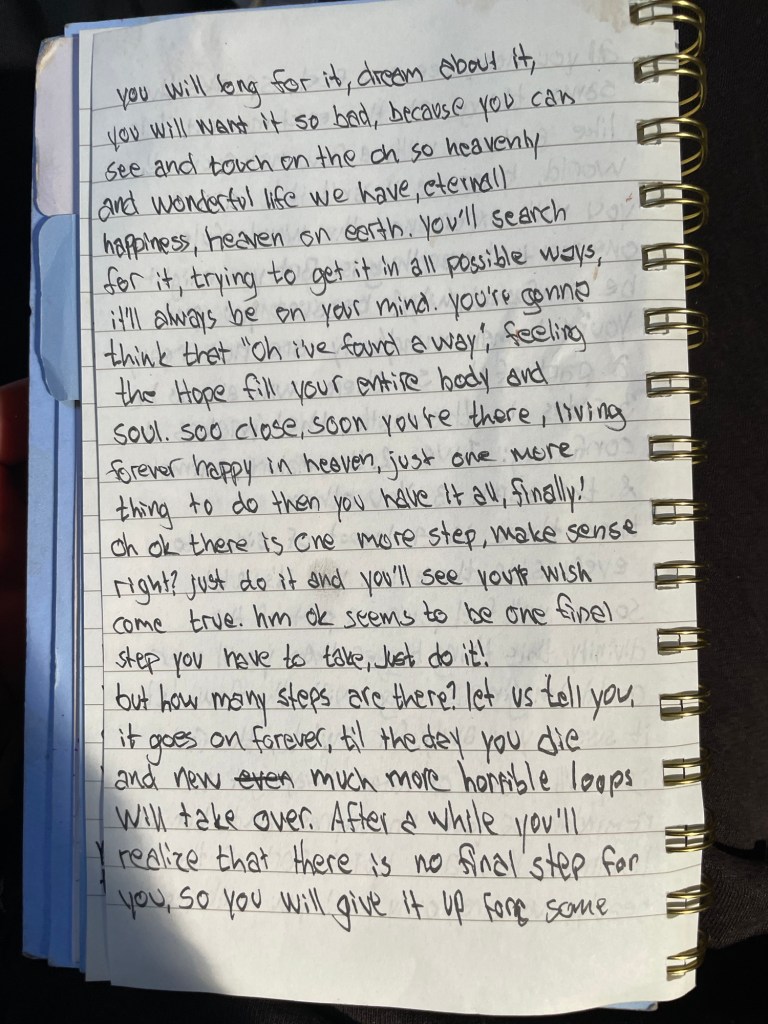 you will long for it, dream about it,
you will want it so bad, because you can
see and touch on the oh so heavenly
and wonderful life we have, eternall
happiness, heaven on earth. you'll search
for it, trying to get it in all possible ways,
it'll always be on your mind. you're gonna
think that "oh ive found a way", feeling
the Hope fill your entire body and
soul. soo close, soon you're there, living
forever happy in heaven, just one more
thing to do then you have it all, finally!
oh ok there is one more step, make sense
right? just do it and you'll see your wish
come true. hm ok seems to be one final
step you have to take, Just do it!
but how many steps are there? let us tell you,
it goes on forever, til the day you die
and new even much more horrible loops
will take over. After a while you'll
realize that there is no final step for
you, so you will give it up for some